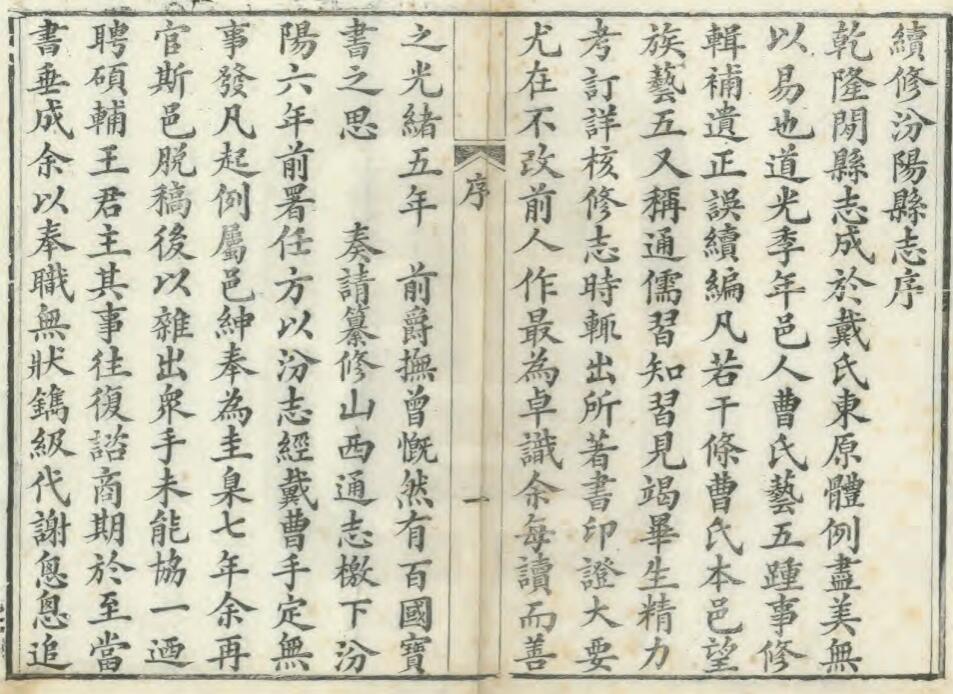 續修汾陽縣志序
乾隆閒縣志成於戴氏東原體例盡美無
以易也道光季年邑人曹氏藝五踵事修
輯補遺正誤續編凡若干條曹氏本邑望
族藝五又稱通儒習知習見竭畢生精力
考訂詳核修志時輒出所著書印證大要
尤在不改前人作最為卓識余每讀而善
序
一
之光緒五年 前爵撫曾慨然有百國寶
書之思 奏請纂修山西通志檄下汾
陽六年前署任方以汾志經戴曹手定無
事發凡起例屬邑紳奉為圭臬七年余再
官斯邑脫稿後以雜出眾手未能協一迺
聘碩輔王君主其事往復諮商期於至當
書垂成余以奉職無狀鐫級代謝恖恖追